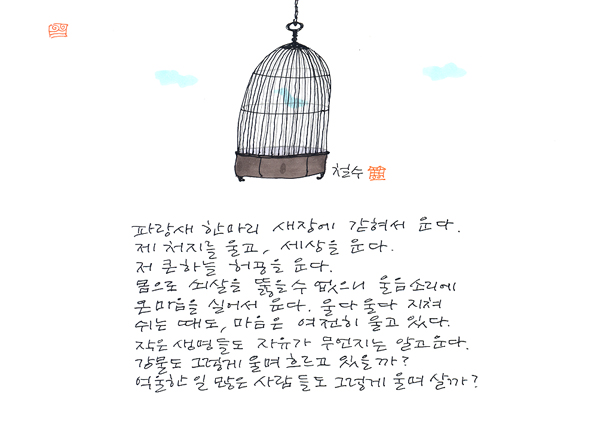 철수
파랑새 한마리 새장에 갇혀서 운다.
제 처지를 울고, 세상을 운다.
저 큰하늘 허공을 운다.
몸으로 쇠살을 뚫을수 없으니 울음소리에
온마음을 실어서 운다. 울다 울다 지쳐
쉬는 때도, 마음은 여전히 울고 있다.
작은 생명들도 자유가 무언지는 알고운다.
강물도 그렇게 울며 흐르고 있을까?
억울한 일 많은 사람들도 그렇게 울며 살까?